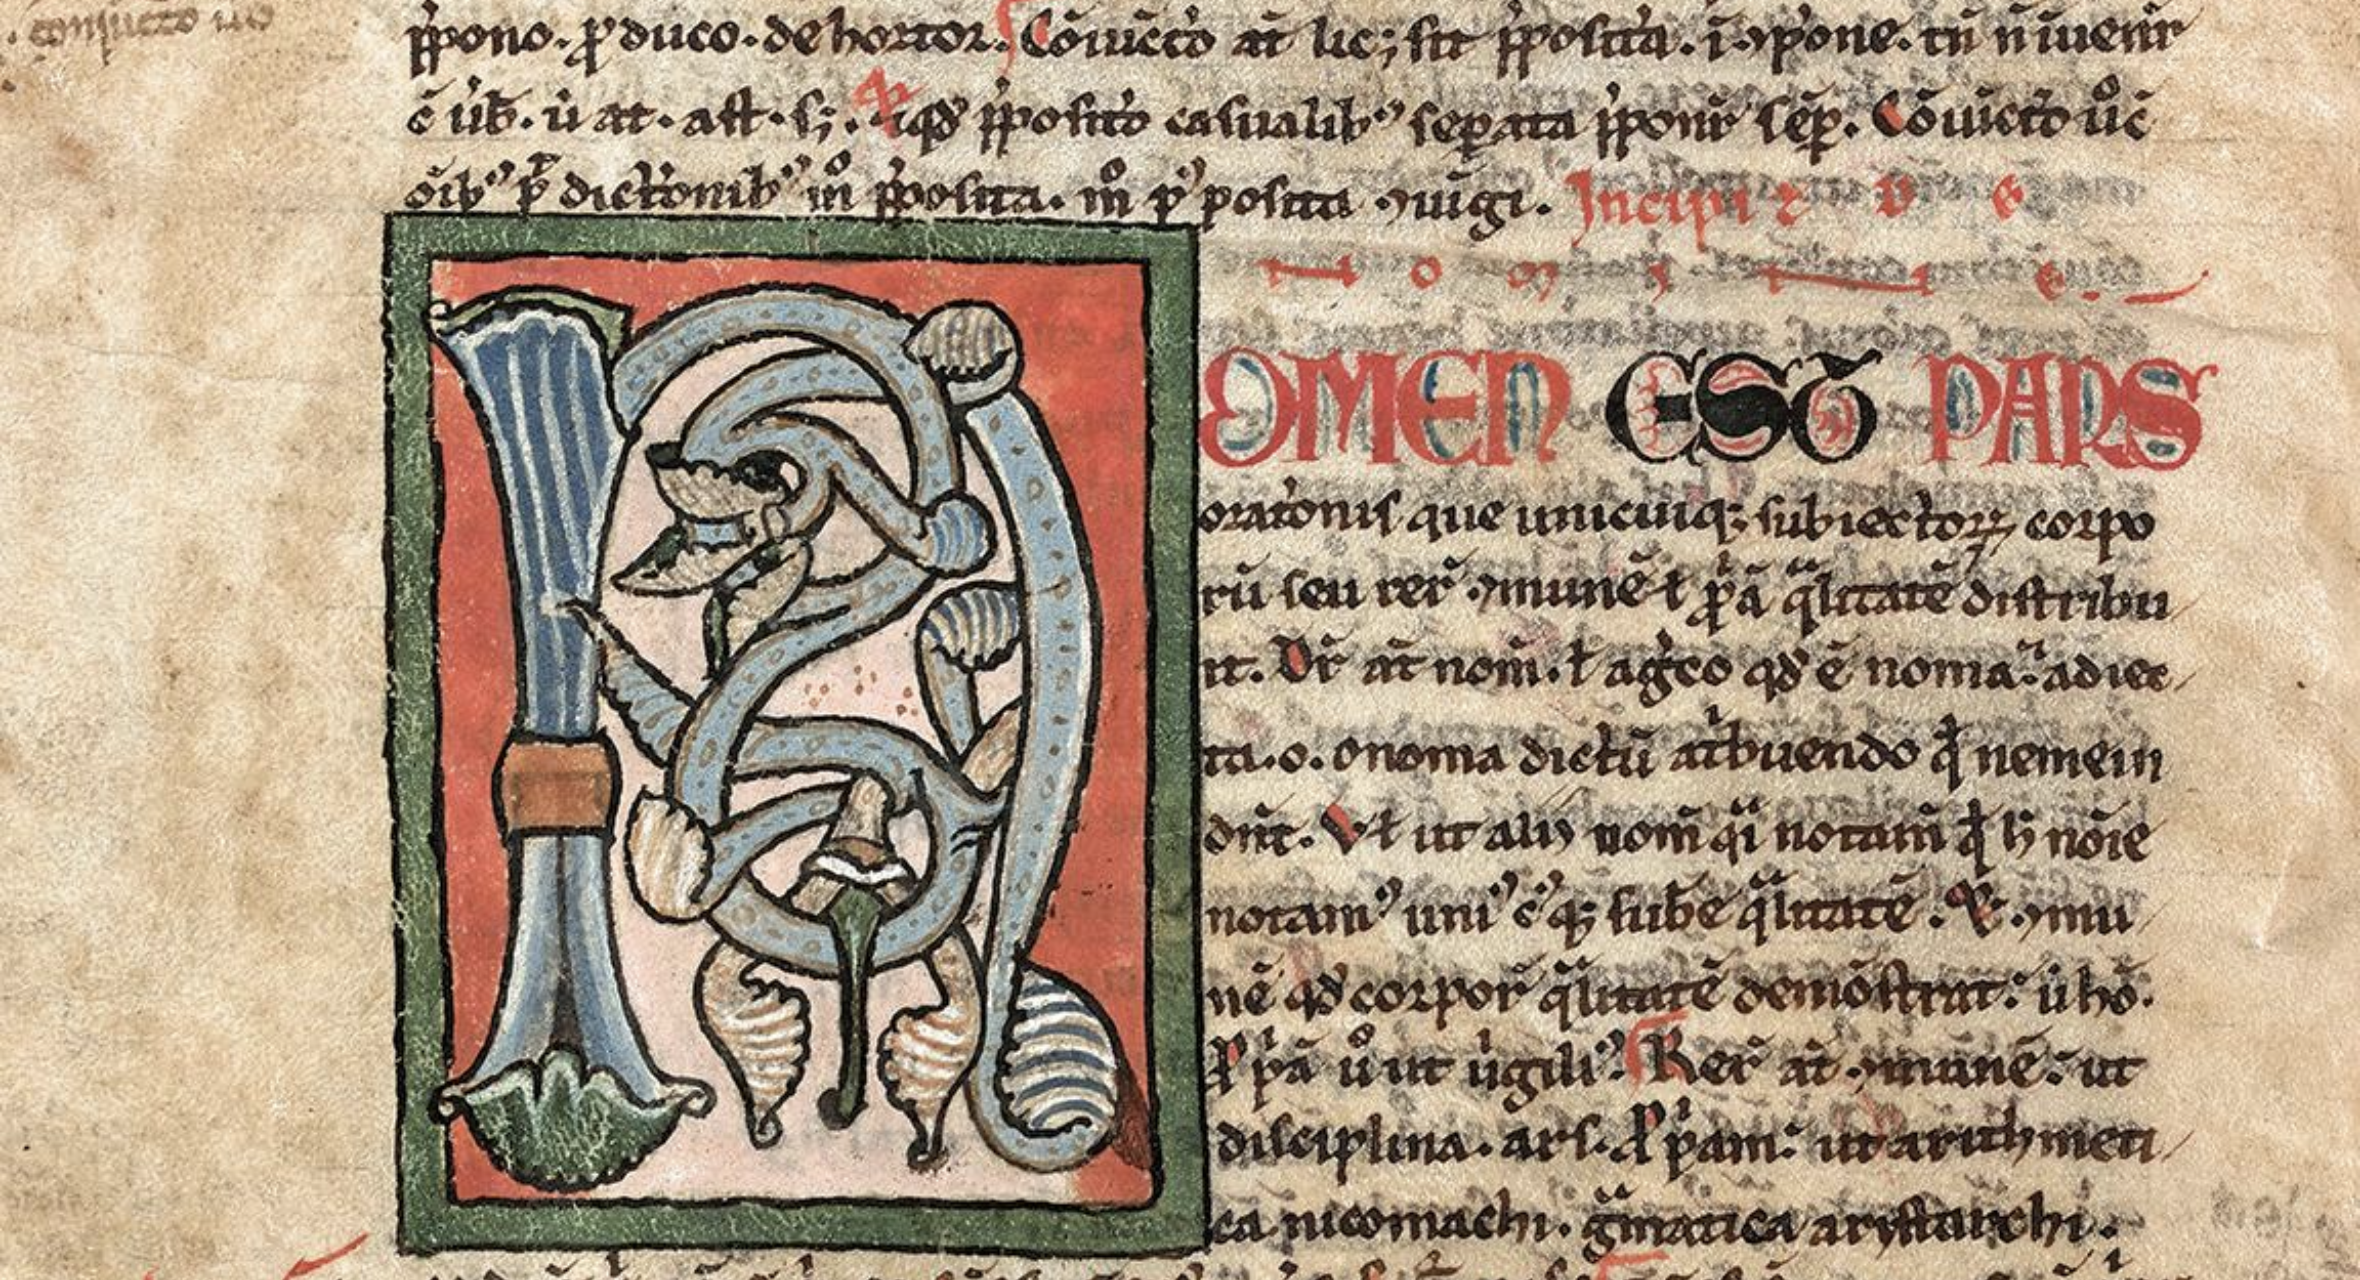 p̄pono. ꝓduco. dehortor. Cōiūcto at̄ lic; sit p̄posita. ī ꝯpone. tn̄ n̄ īuenit᷑
ē ůb. ů at. ast. sꝫ. p̄posito casualibꝰ separata p̄ponit᷑ sēp. Cōiūctō ů c̄
oīb᷒ dictōnib᷒ m̊ p̄posita. m̊ posita ꝯiūgi. Incipit D E
N O M I N E.
NOMEN EST PARS
oratōnis que unicuiqꝫ subiectoꝝ corpo
rū seu rer̄ ꝯmunē ł pp̄ā q̄litatē distribu
it. Dr̄ at̄ nom̄. ł a greco qđ ē noma. adiec
ta .o. onoma dictū at̓buendo qđ nemein
dn̄t. Vł ut alij nom̄ q̄i notam̄ qđ h̄ nōie
notamꝰ uniꝰ cꝰqꝫ sub̄e q̄litatē. ꝯmu
nē qđ corpor̄ q̄litatē demōstrat. ů hō.
pp̄ā ů ut ůgiliꝰ. Rer̄ at̄ ꝯmunē. ut
disciplina. ars. pp̄am. ut arithmeti
ca nicomachi. gm̄atica arystarchi.